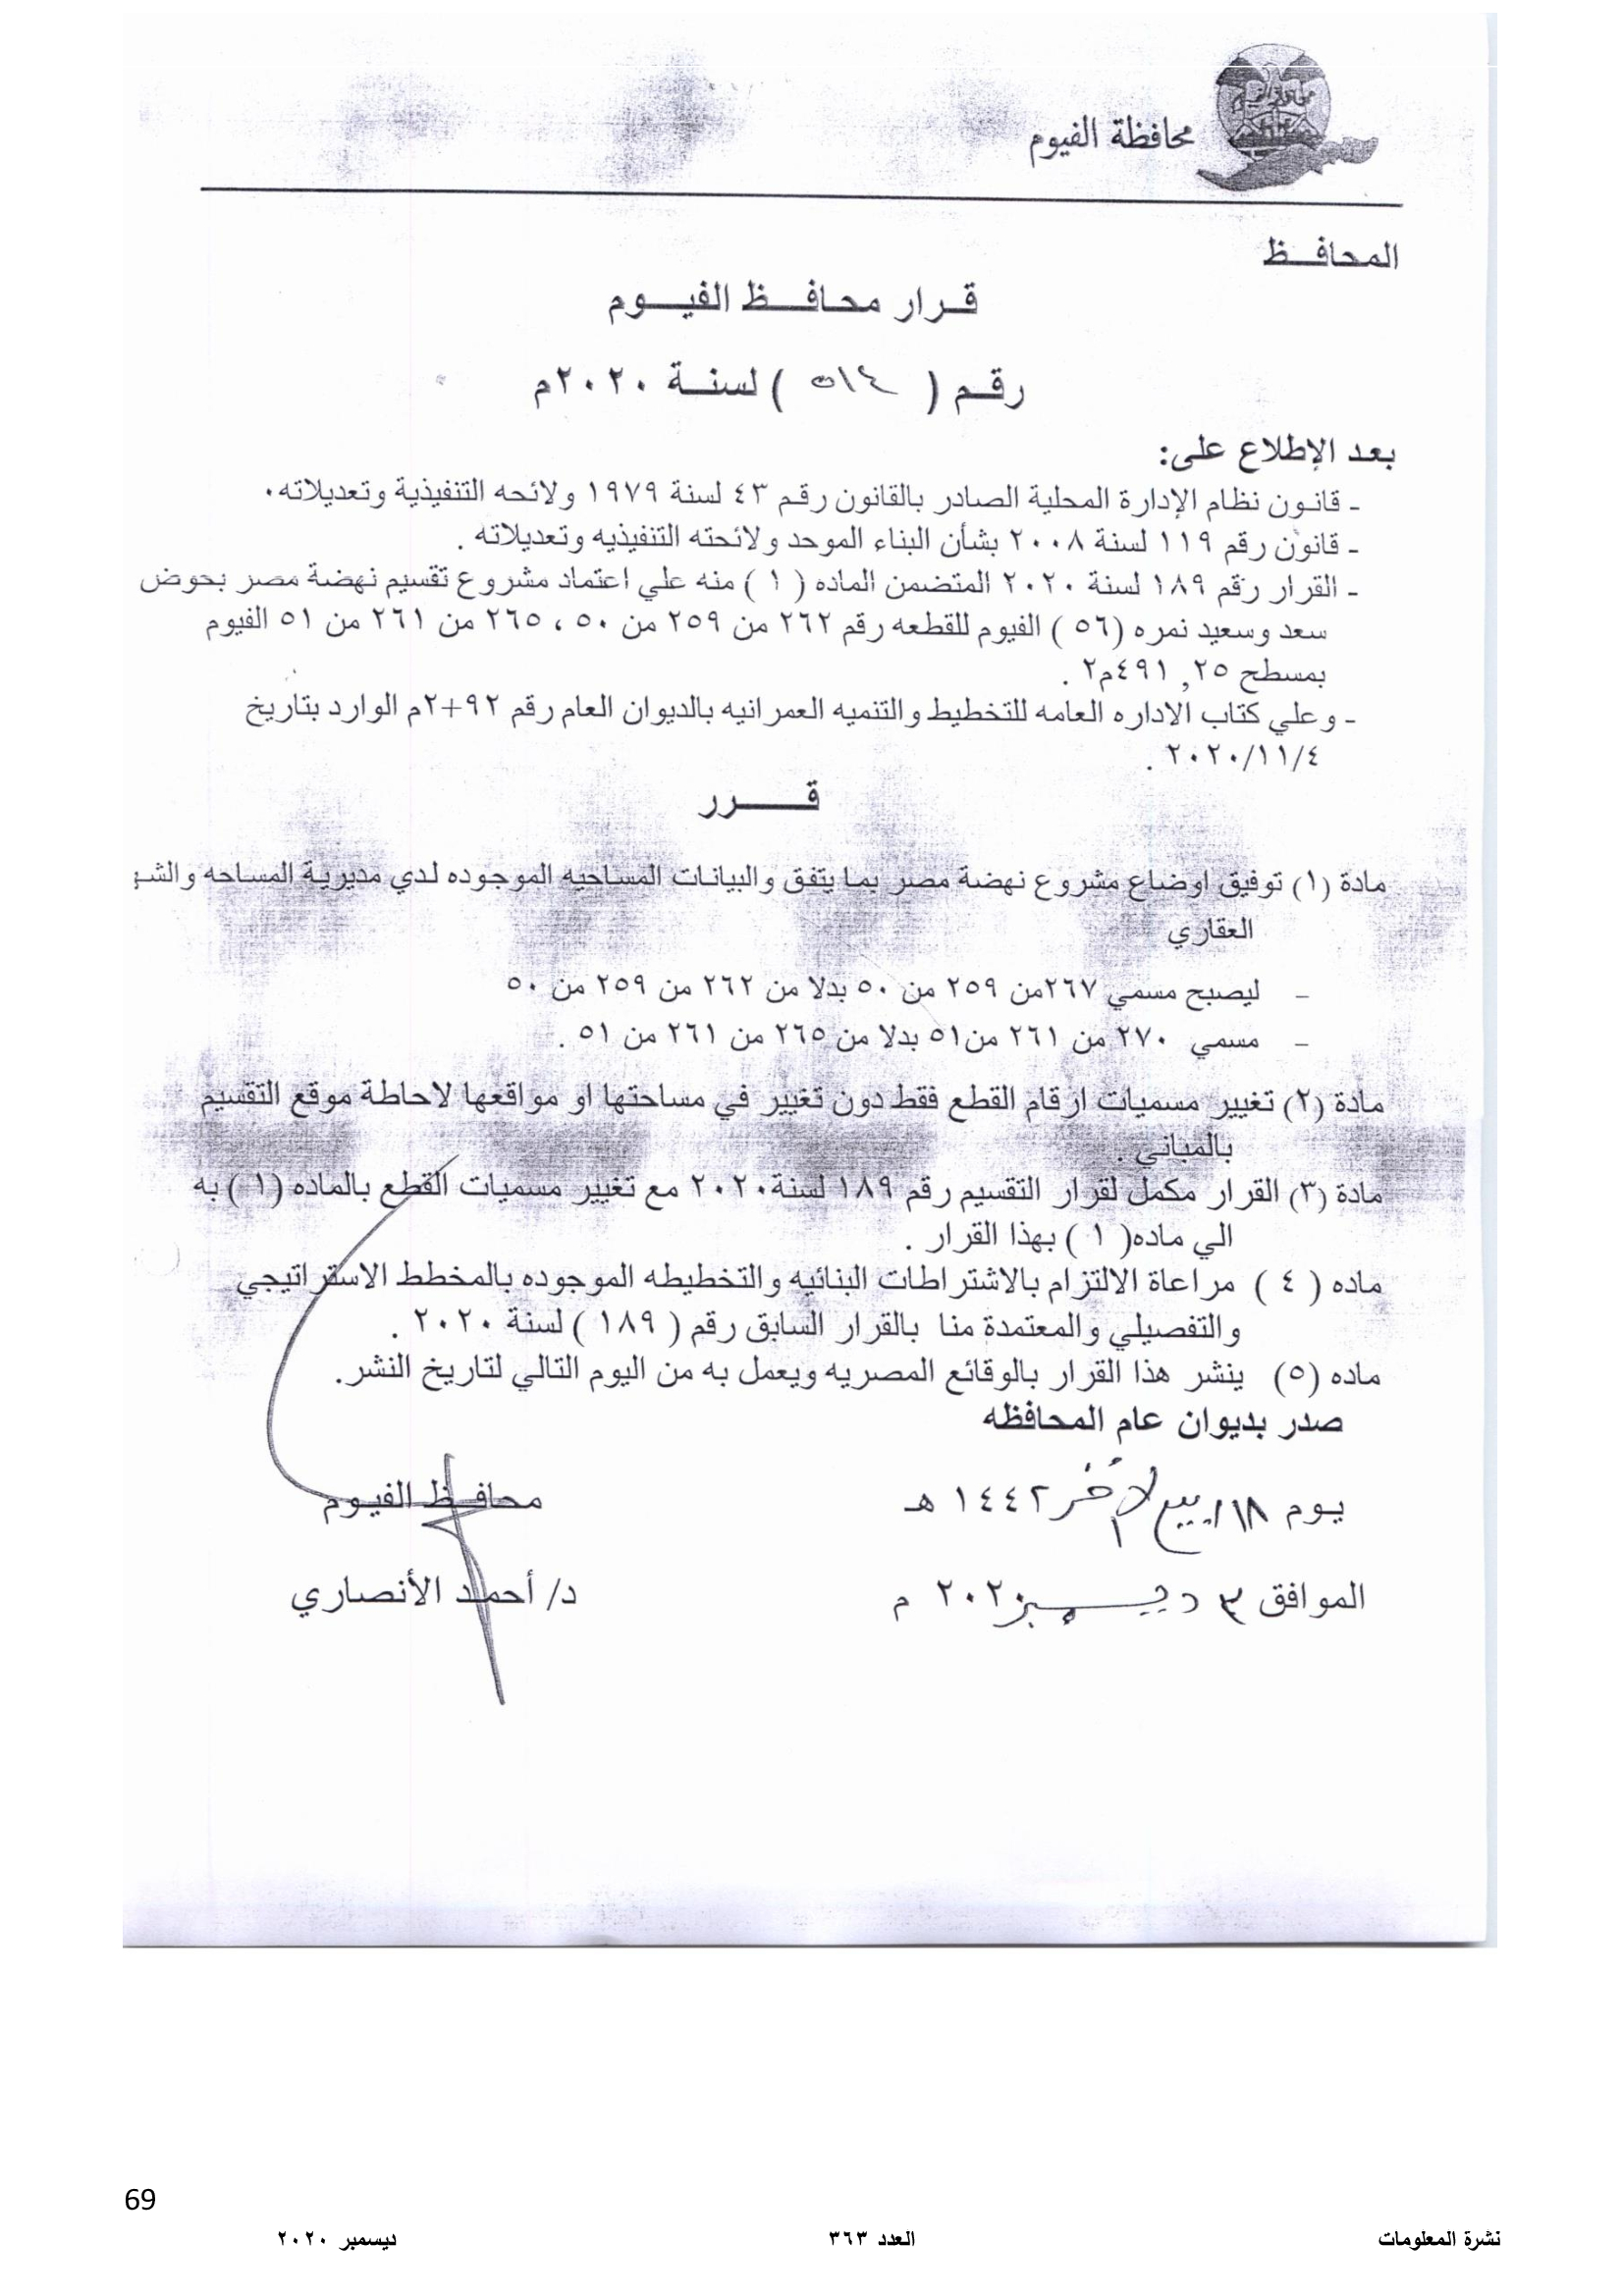 محافظة الفيوم
المحافظ
قرار محافظ الفيوم
رقم ( ٥١٤ ) لسنة ٢٠٢٠م
بعد الإطلاع على:
- قانون نظام الإدارة المحلية الصادر بالقانون رقم ٤٣ لسنة ١٩٧٩ ولائحه التنفيذية وتعديلاته٠
- قانون رقم ١١٩ لسنة ٢٠٠٨ بشأن البناء الموحد ولائحته التنفيذيه وتعديلاته .
- القرار رقم ١٨٩ لسنة ٢٠٢٠ المتضمن الماده ( ١ ) منه علي اعتماد مشروع تقسيم نهضة مصر بحوض
سعد وسعيد نمره (٥٦ ) الفيوم للقطعه رقم ٢٦٢ من ٢٥٩ من ٥٠ ، ٢٦٥ من ٢٦١ من ٥١ الفيوم
بمسطح ٤٩١,٢٥م٢ .
- وعلي كتاب الاداره العامه للتخطيط والتنميه العمرانيه بالديوان العام رقم ٩٢+٢م الوارد بتاريخ
٢٠٢٠/١١/٤ .
قـــــرر
مادة (١) توفيق اوضاع مشروع نهضة مصر بما يتفق والبيانات المساحيه الموجوده لدي مديرية المساحه والشه
العقاري
- ليصبح مسمي ٢٦٧من ٢٥٩ من ٥٠ بدلا من ٢٦٢ من ٢٥٩ من ٥٠
- مسمي ٢٧٠ من ٢٦١ من٥١ بدلا من ٢٦٥ من ٢٦١ من ٥١ .
مادة (٢) تغيير مسميات ارقام القطع فقط دون تغيير في مساحتها او مواقعها لاحاطة موقع التقسيم
بالمباني .
مادة (٣) القرار مكمل لقرار التقسيم رقم ١٨٩ لسنة٢٠٢٠ مع تغيير مسميات القطع بالماده ( ١ ) به
الي ماده( ١ ) بهذا القرار .
ماده ( ٤ ) مراعاة الالتزام بالاشتراطات البنائيه والتخطيطه الموجوده بالمخطط الاستراتيجي
والتفصيلي والمعتمدة منا بالقرار السابق رقم ( ١٨٩ ) لسنة ٢٠٢٠ .
ماده (٥) ينشر هذا القرار بالوقائع المصريه ويعمل به من اليوم التالي لتاريخ النشر.
صدر بديوان عام المحافظه
يوم ١٨/ربيع الآخر ١٤٤٢ هـ
محافظ الفيوم
الموافق ٣ ديسمبر ٢٠٢٠ م
د/ أحمد الأنصاري
69
نشرة المعلومات العدد ٣٦٣ ديسمبر ٢٠٢٠